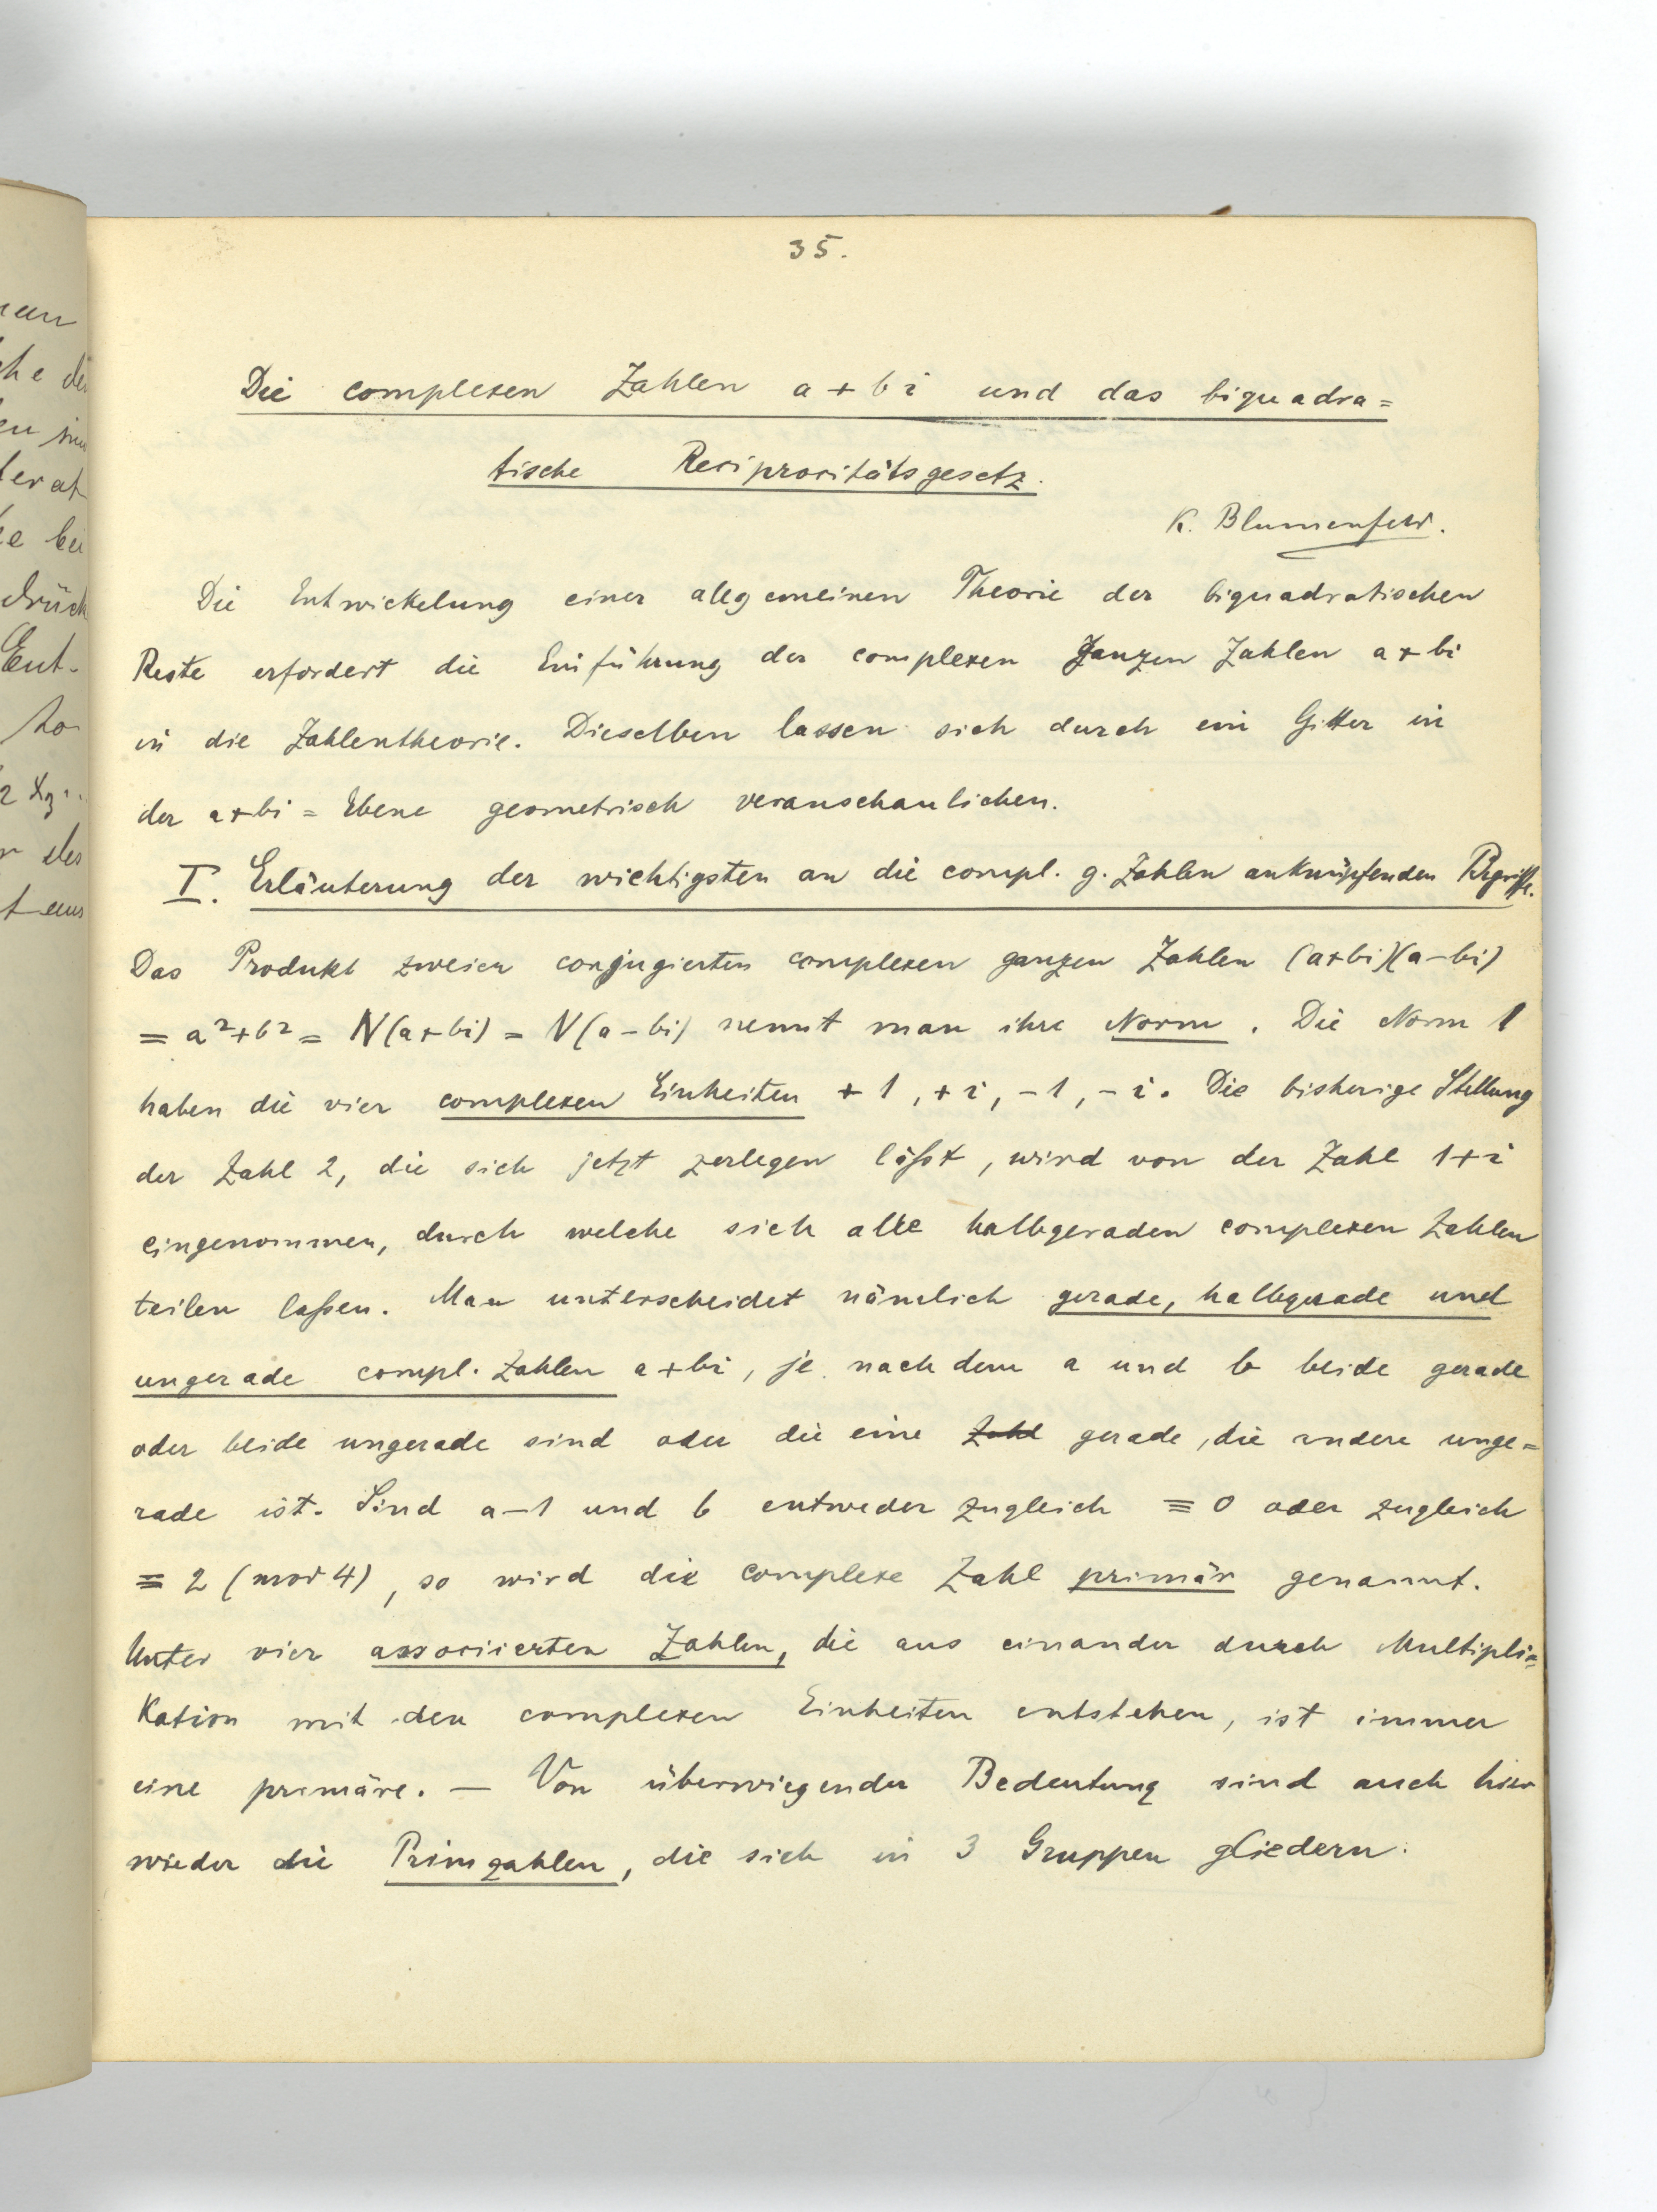 man
che die
en sin
terat
ke bei
drück
Ent-
zo
des
t aus
35.
Die complexen Zahlen a + b i und das biquadra=
tische Reciprocitätsgesetz.
K. Blumenfeld.
Die Entwickelung einer allgemeinen Theorie der biquadratischen
Reste erfordert die Einführung der complexen ganzen Zahlen a + bi
in die Zahlentheorie. Dieselben lassen sich durch ein Gitter in
der a+bi = Ebene geometrisch veranschaulichen.
I. Erläuterung der wichtigsten an die compl. g. Zahlen anknüpfenden Begriffe.
Das Produkt zweier conjugierten complexen ganzen Zahlen (a+bi)(a-bi)
= a²+b² = N(a+bi) = N(a-bi) nennt man ihre Norm. Die Norm 1
haben die vier complexen Einheiten +1, +i, -1, -i. Die bisherige Stellung
der Zahl 2, die sich jetzt zerlegen läßt, wird von der Zahl 1+i
eingenommen, durch welche sich alle halbgeraden complexen Zahlen
teilen laßen. Man unterscheidet nämlich gerade, halbgerade und
ungerade compl. Zahlen a+bi, je nachdem a und b beide gerade
oder beide ungerade sind oder die eine Zahl gerade, die andere unge=
rade ist. Sind a-1 und b entweder zugleich ≡ 0 oder zugleich
≡ 2 (mod 4), so wird die complexe Zahl primär genannt.
Unter vier associierten Zahlen, die aus einander durch Multipli=
kation mit den complexen Einheiten entstehen, ist immer
eine primäre. — Von überwiegender Bedeutung sind auch hier
wieder die Primzahlen, die sich in 3 Gruppen gliedern: